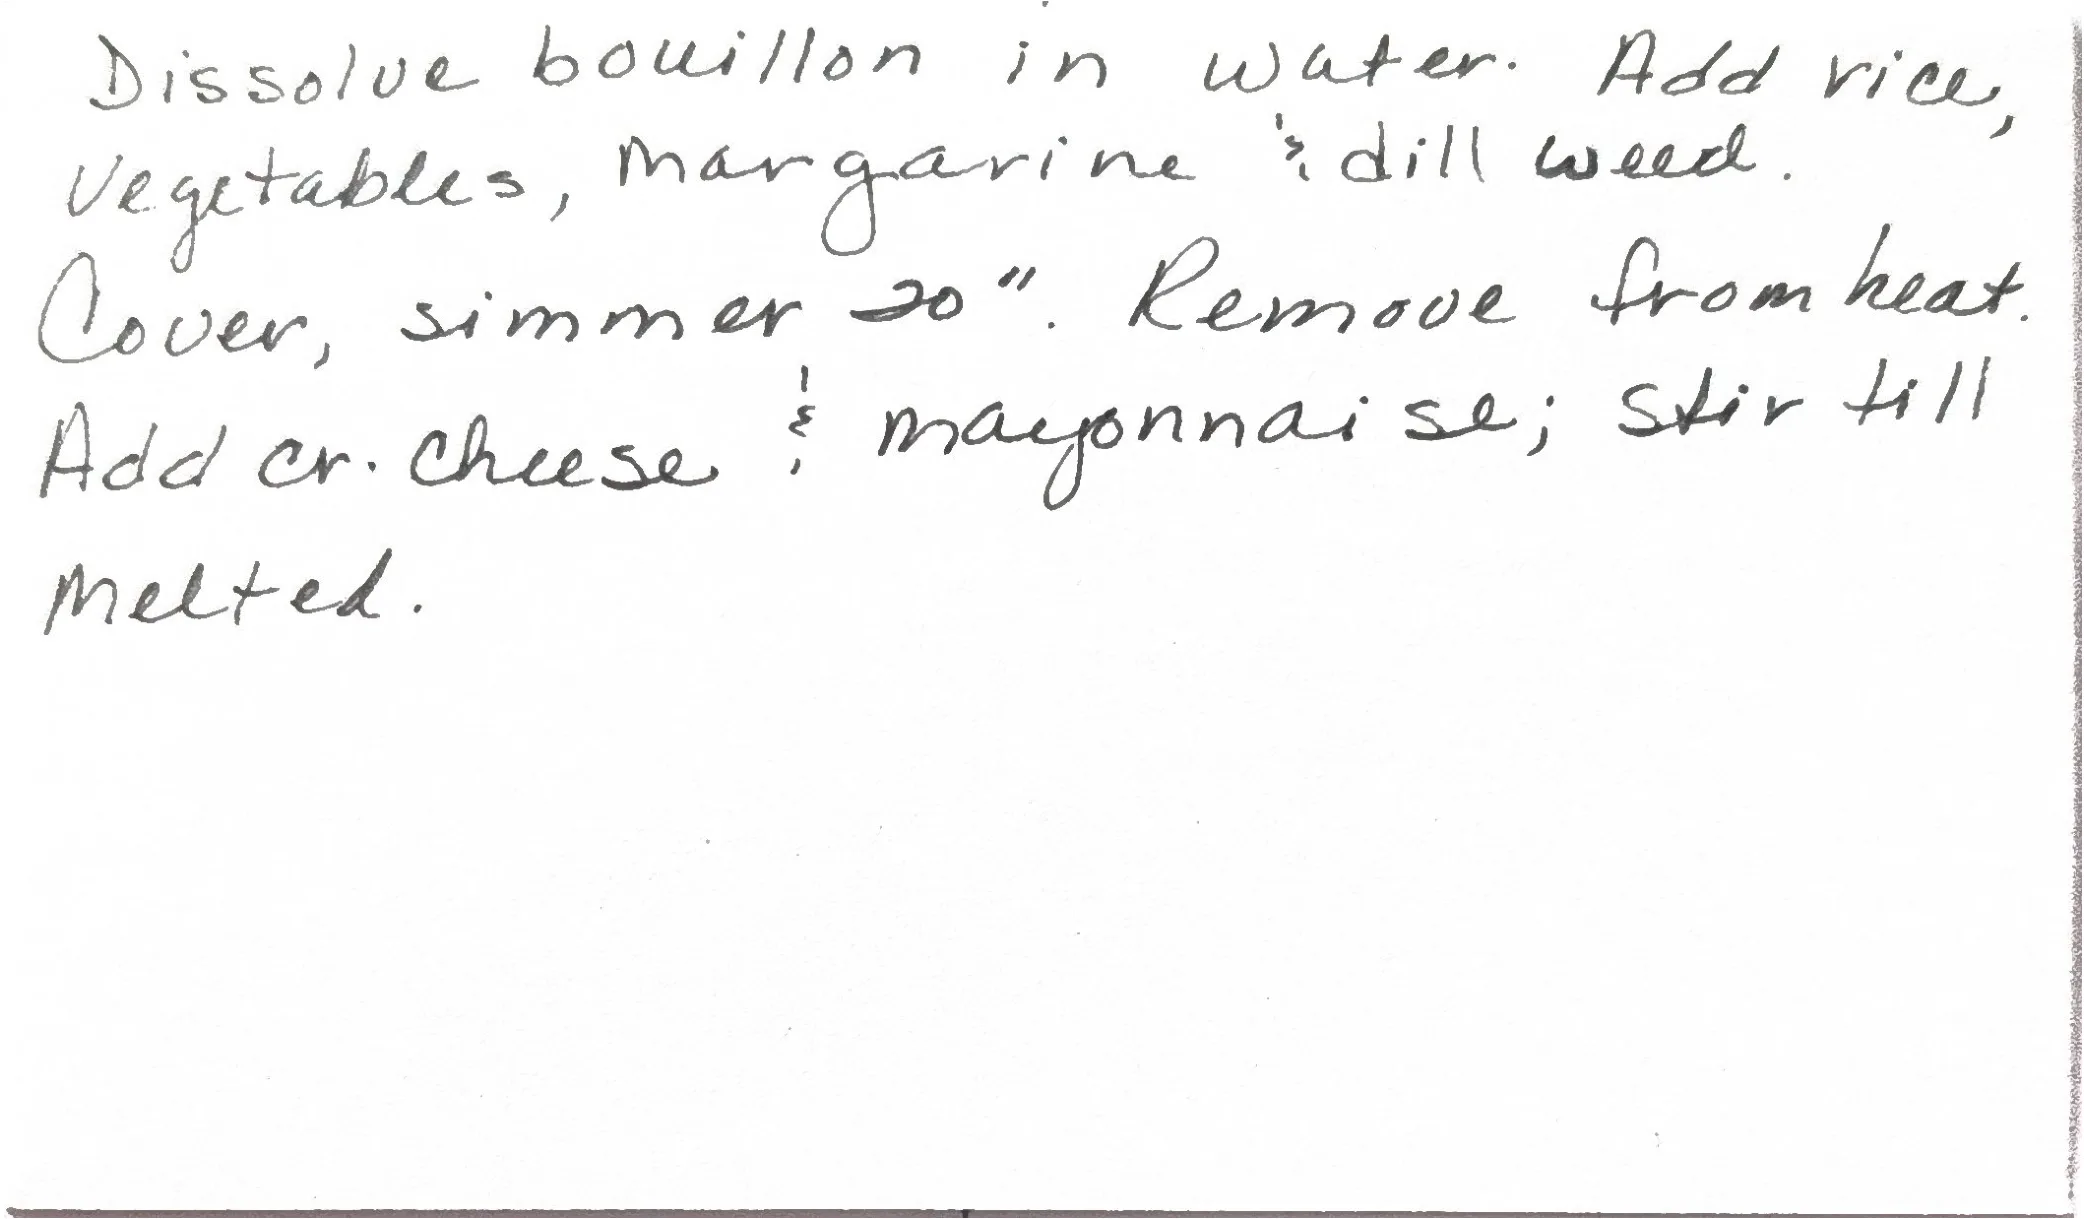 Dissolve bouillon in water. Add rice,
vegetables, margarine & dill weed.
Cover, simmer 20". Remove from heat.
Add cr. cheese & mayonnaise; stir till
melted.